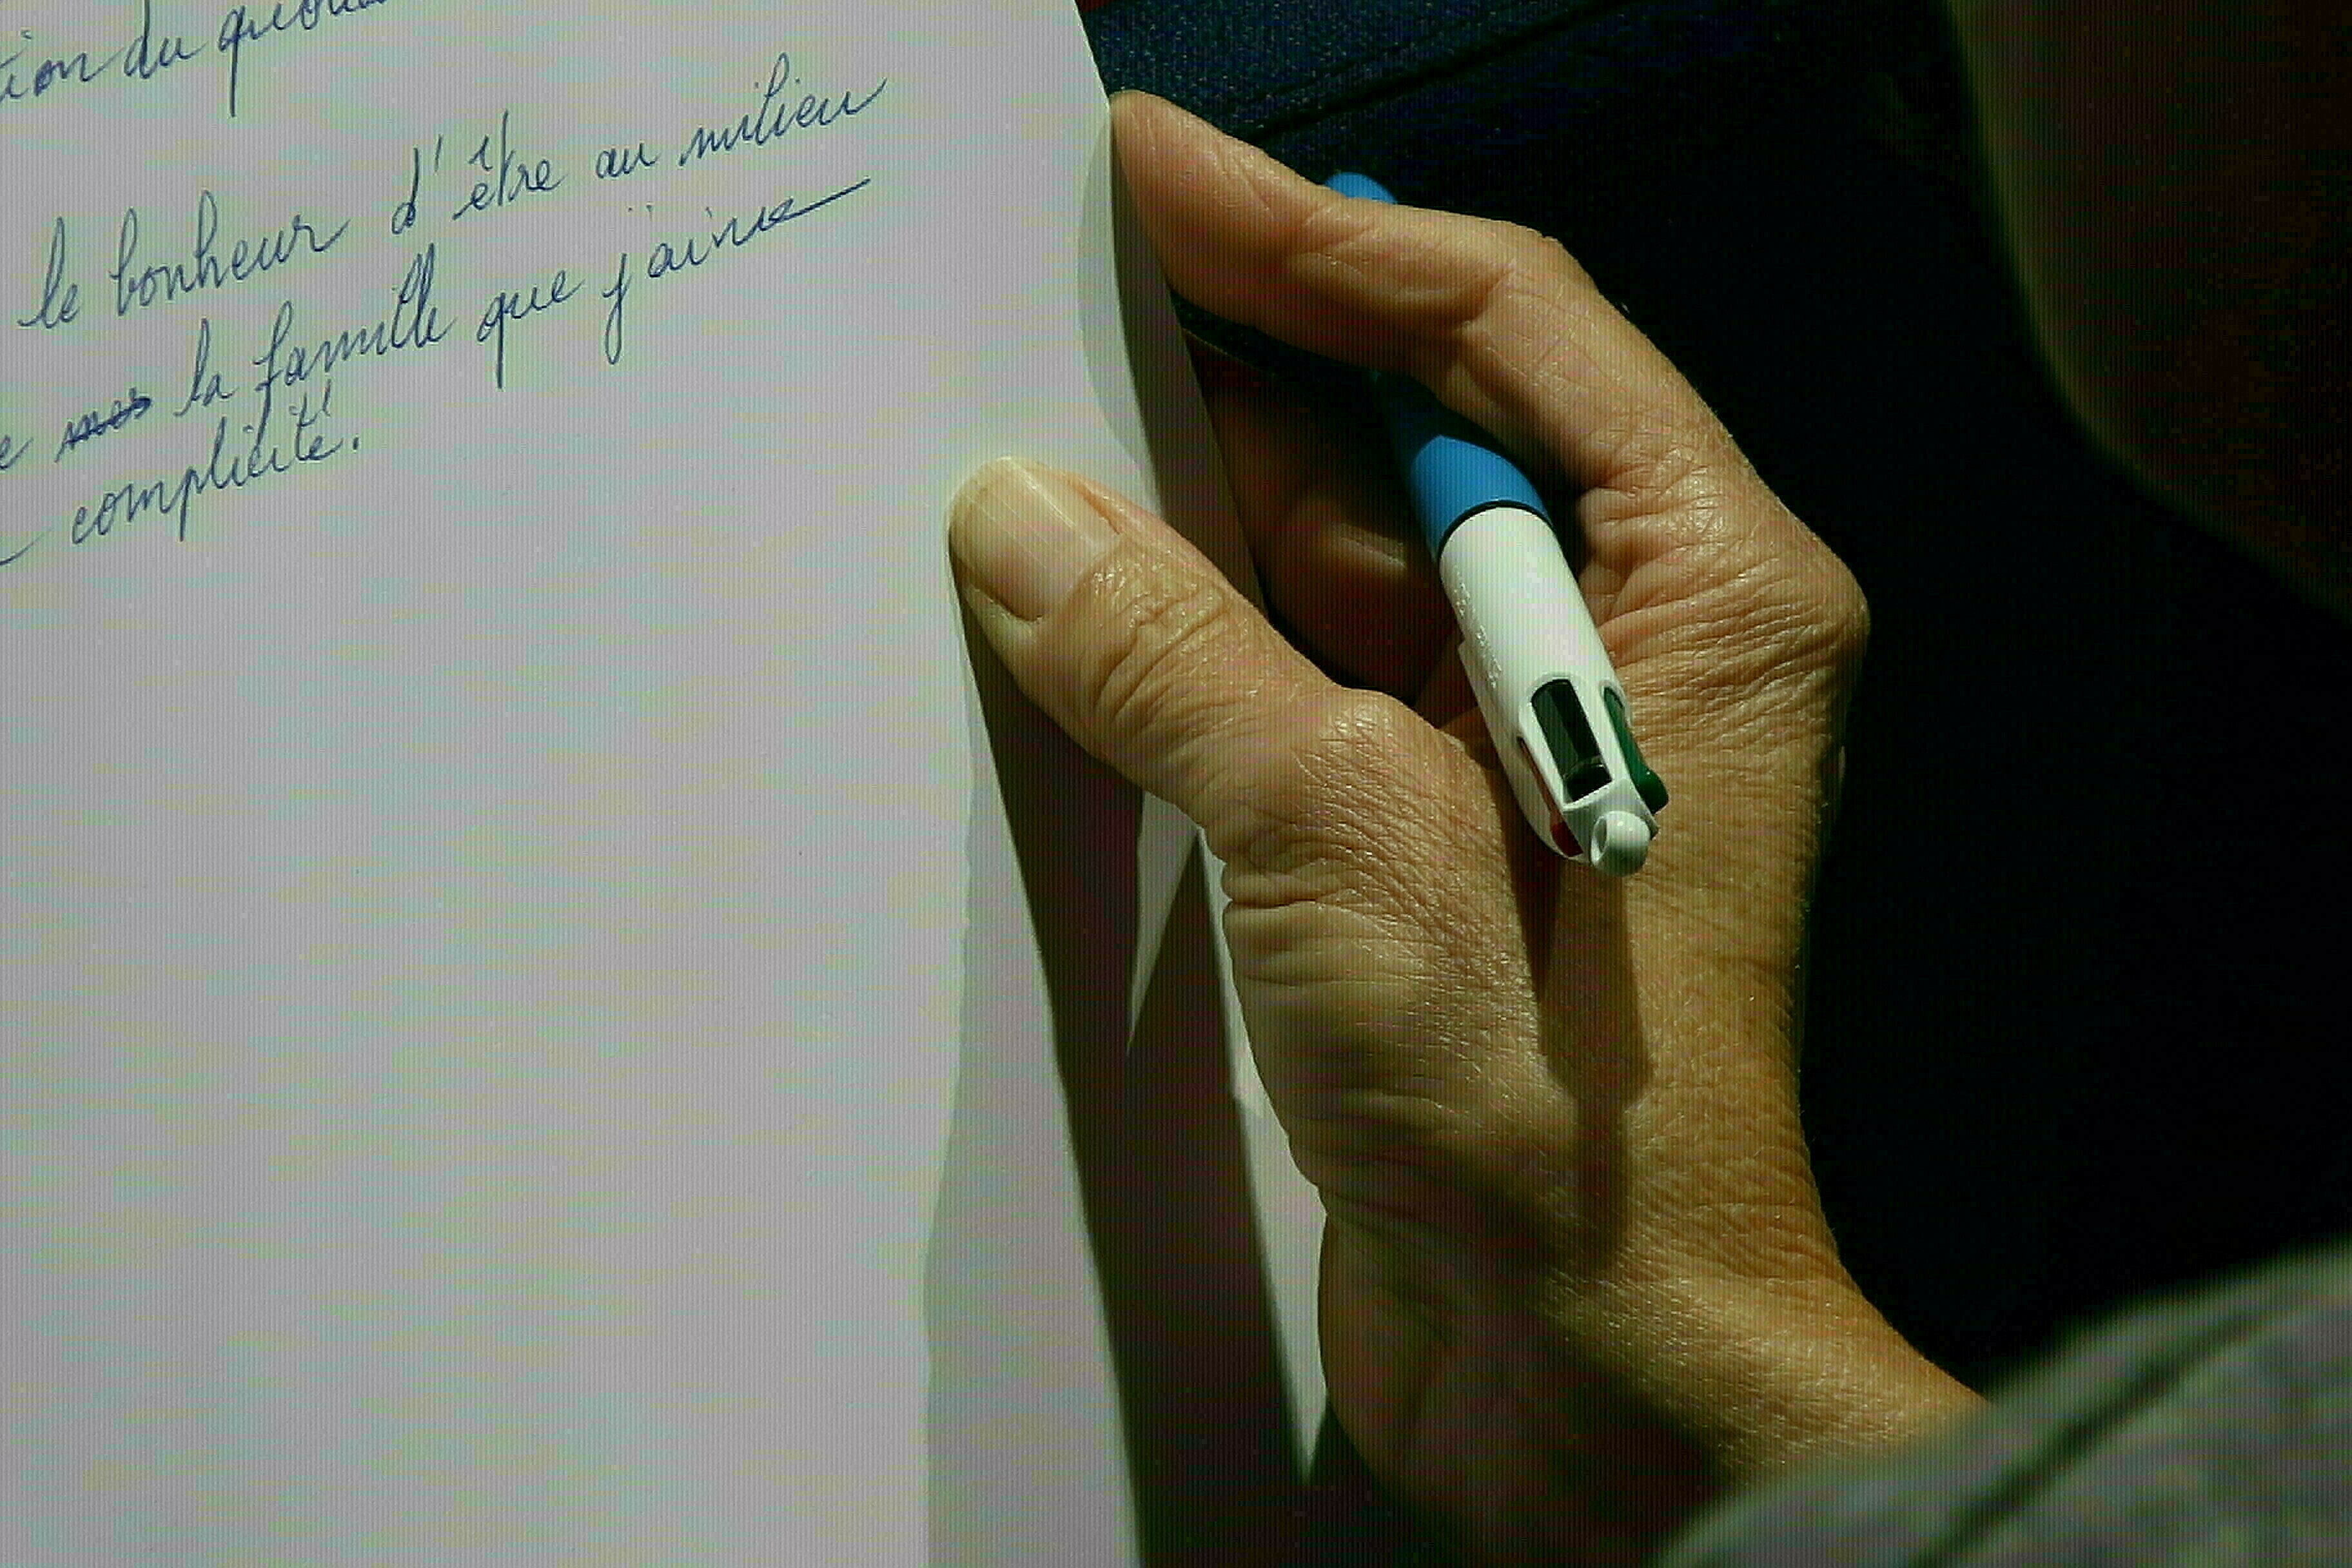 tion du
le bonheur d'être au milieu
e mes la famille que j'aime
complicité.